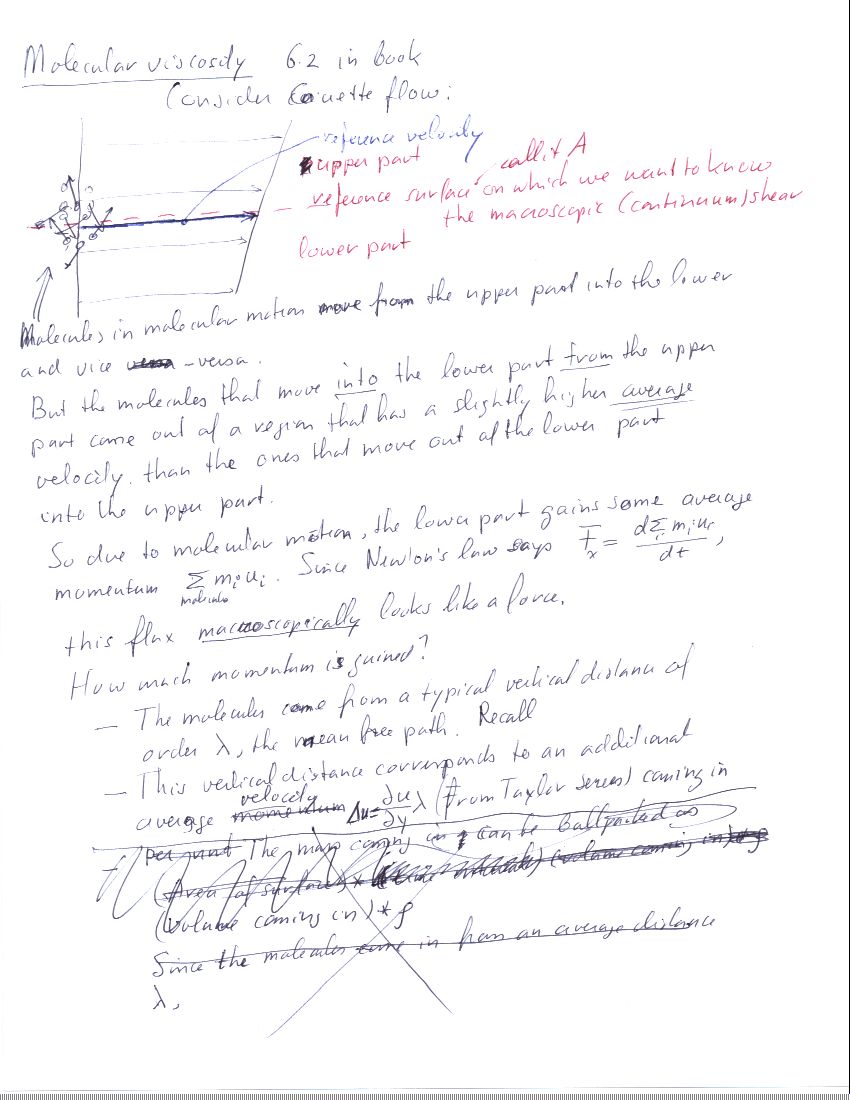 Molecular viscosity 6.2 in Book
Consider Couette flow:
reference velocity
upper part
call it A
reference surface on which we want to know
the macroscopic (continuum) shear
lower part
Molecules in molecular motion move from the upper part into the lower
and vice versa -versa.
But the molecules that move into the lower part from the upper
part come out of a region that has a slightly higher average
velocity. than the ones that move out of the lower part
into the upper part.
So due to molecular motion, the lower part gains some average
momentum Σ mᵢuᵢ. Since Newton's law says Fₓ = dΣᵢ mᵢuᵢ / dt,
molecules
this flux macroscopically looks like a force.
How much momentum is gained?
— The molecules come from a typical vertical distance of
order λ, the mean free path. Recall
— This vertical distance corresponds to an additional
velocity
average momentum Δu = ∂u/∂y λ (from Taylor series) coming in
per unit The mass coming in can be ballparked as
(Area of surface) * (volume coming in) * ρ
(volume coming in) * ρ
Since the molecules come in from an average distance
λ,